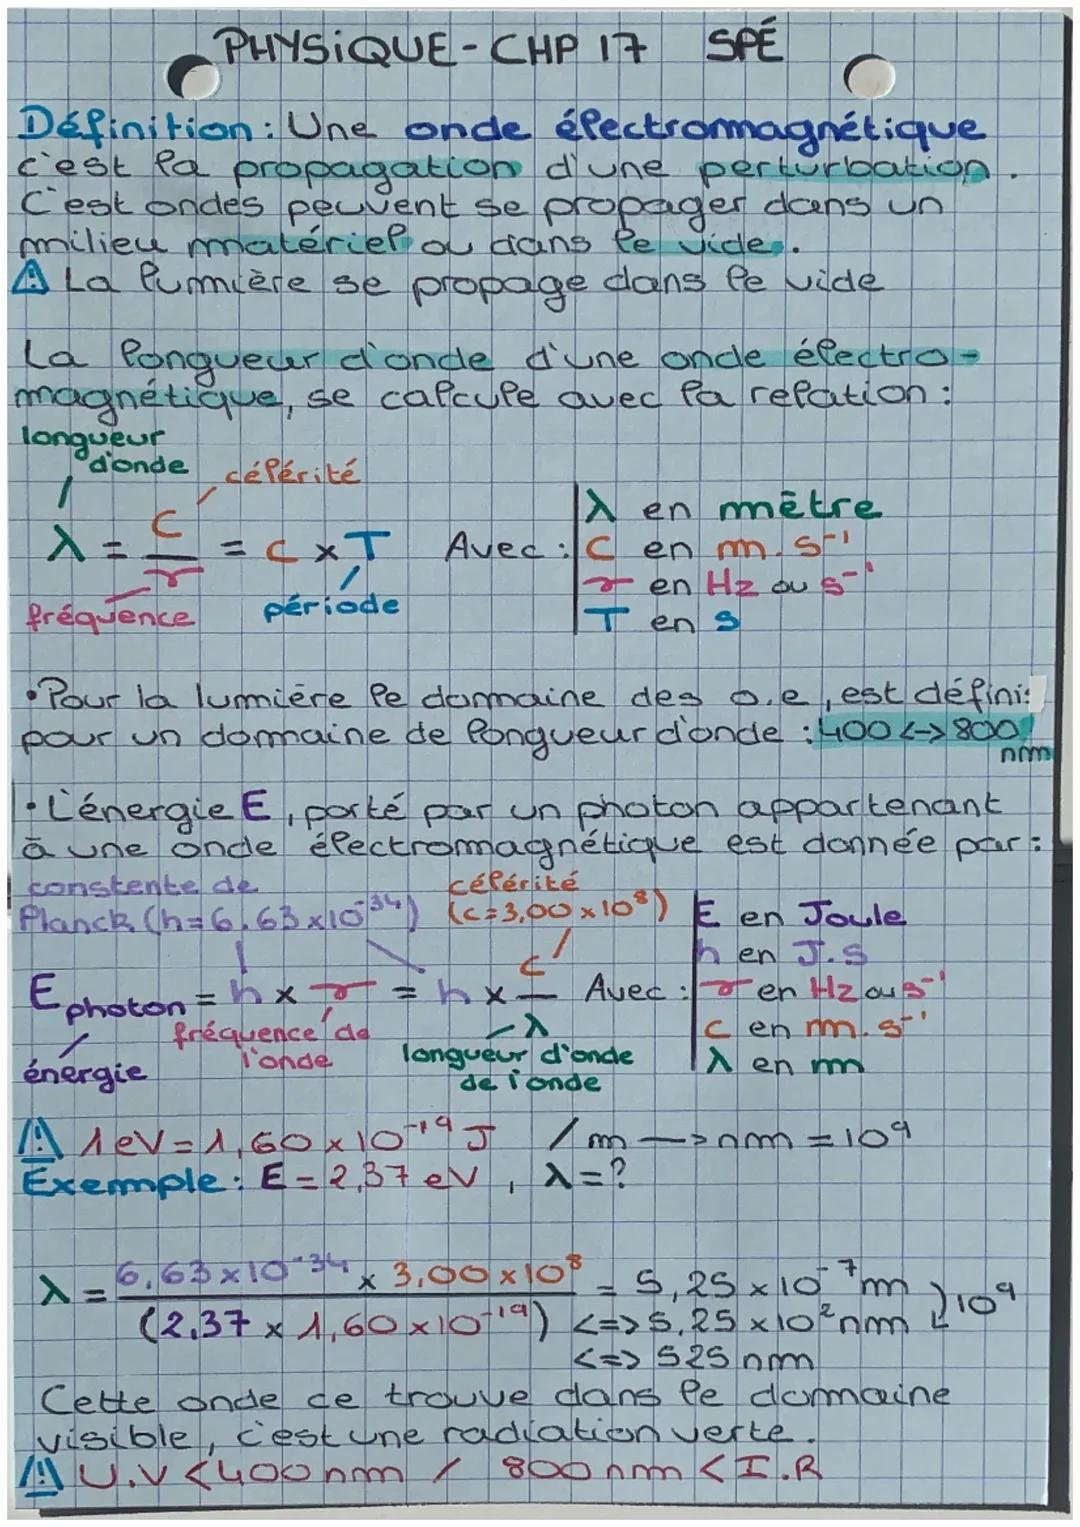 PHYSIQUE - CHP 17 SPÉ
Définition : Une onde électromagnétique
c'est la propagation d'une perturbation.
C'est ondes peuvent se propager dans un
milieu matériel ou dans le vide.
⚠ La lumière se propage dans le vide
La longueur d'onde d'une onde électro-
magnétique, se calcule avec la relation :
longueur
d'onde
célérité
λ = c/ν = c × T Avec :
fréquence
période
λ en mètre
c en m.s⁻¹
ν en Hz ou s⁻¹
T en s
• Pour la lumière le domaine des o.e, est définis
pour un domaine de longueur d'onde : 400 <-> 800
nm
• L'énergie E, porté par un photon appartenant
à une onde électromagnétique est donnée par :
constente de
Planck (h = 6,63 × 10⁻³⁴)
célérité
(c = 3,00 × 10⁸)
E photon = h × ν = h × c/λ Avec :
énergie
fréquence de
l'onde
longueur d'onde
de l'onde
E en Joule
h en J.S
ν en Hz ou s⁻¹
c en m.s⁻¹
λ en m
⚠ 1 eV = 1,60 × 10⁻¹⁹ J / m —> nm = 10⁹
Exemple : E = 2,37 eV, λ = ?
λ = 6,63 × 10⁻³⁴ × 3,00 × 10⁸ / (2,37 × 1,60 × 10⁻¹⁹) = 5,25 × 10⁻⁷ m
<=> 5,25 × 10² nm
10⁹
<=> 525 nm
Cette onde ce trouve dans le domaine
visible, c'est une radiation verte.
⚠ U.V < 400 nm / 800 nm < I.R